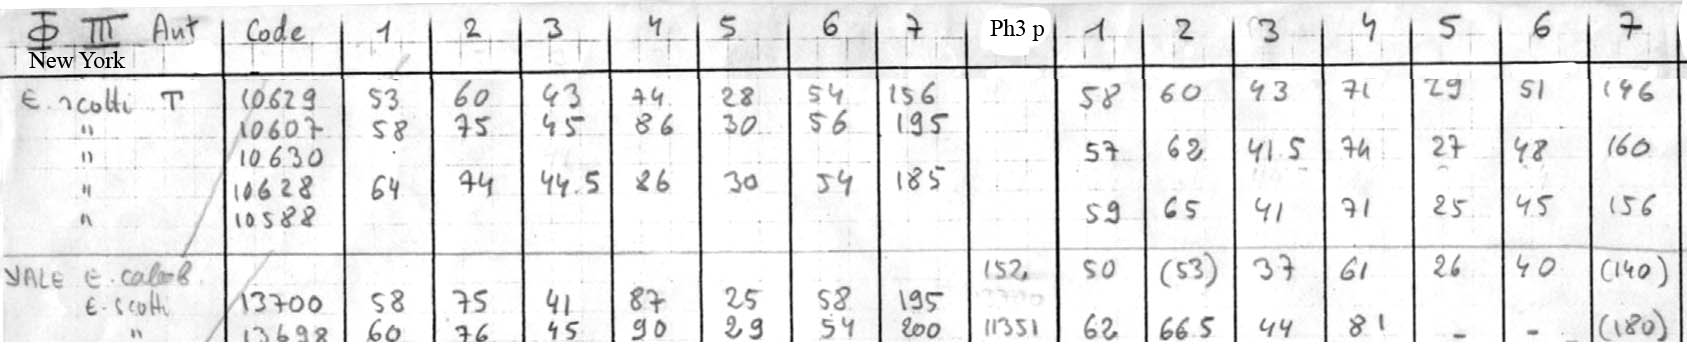 Φ III Ant Code 1 2 3 4 5 6 7 Ph3 p 1 2 3 4 5 6 7
New York
E. scotti T 10629 53 60 43 74. 28 54 156 58 60 43 71 29 51 146
" 10607 58 75 45 86 30 56 195
" 10630 57 62 41.5 74 27 48 160
" 10628 64 74 44.5 86 30 54 185
" 10588 59 65 41 71 25 45 156
YALE E. calob. 152 50 (53) 37 61 26 40 (140)
E. scotti 13700 58 75 41 87 25 58 195
" 13698 60 76 45 90 29 54 200 11351 62 66.5 44 81 - - (180)